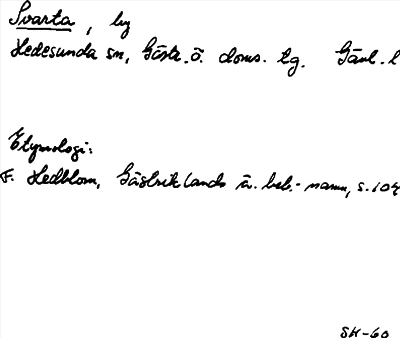 Svarta, by
Hedesunda sn, Gästr. ö. doms. tg. Gävl. l
Etymologi:
F. Hedblom, Gästriklands ä. beb.- namn, s. 104
SH-60